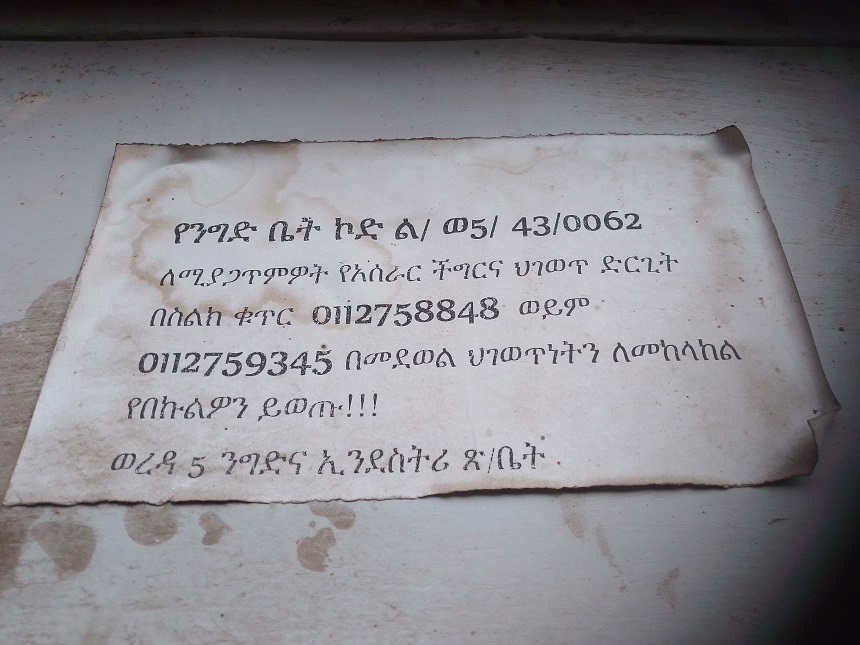 የንግድ ቤት ኮድ ል/ ወ5/ 43/0062
ለሚያጋጥምዎት የአሰራር ችግርና ህገወጥ ድርጊት
በስልክ ቁጥር 0112758848 ወይም
0112759345 በመደወል ህገወጥነትን ለመከላከል
የበኩልዎን ይወጡ!!!
ወረዳ 5 ንግድና ኢንደስትሪ ጽ/ቤት